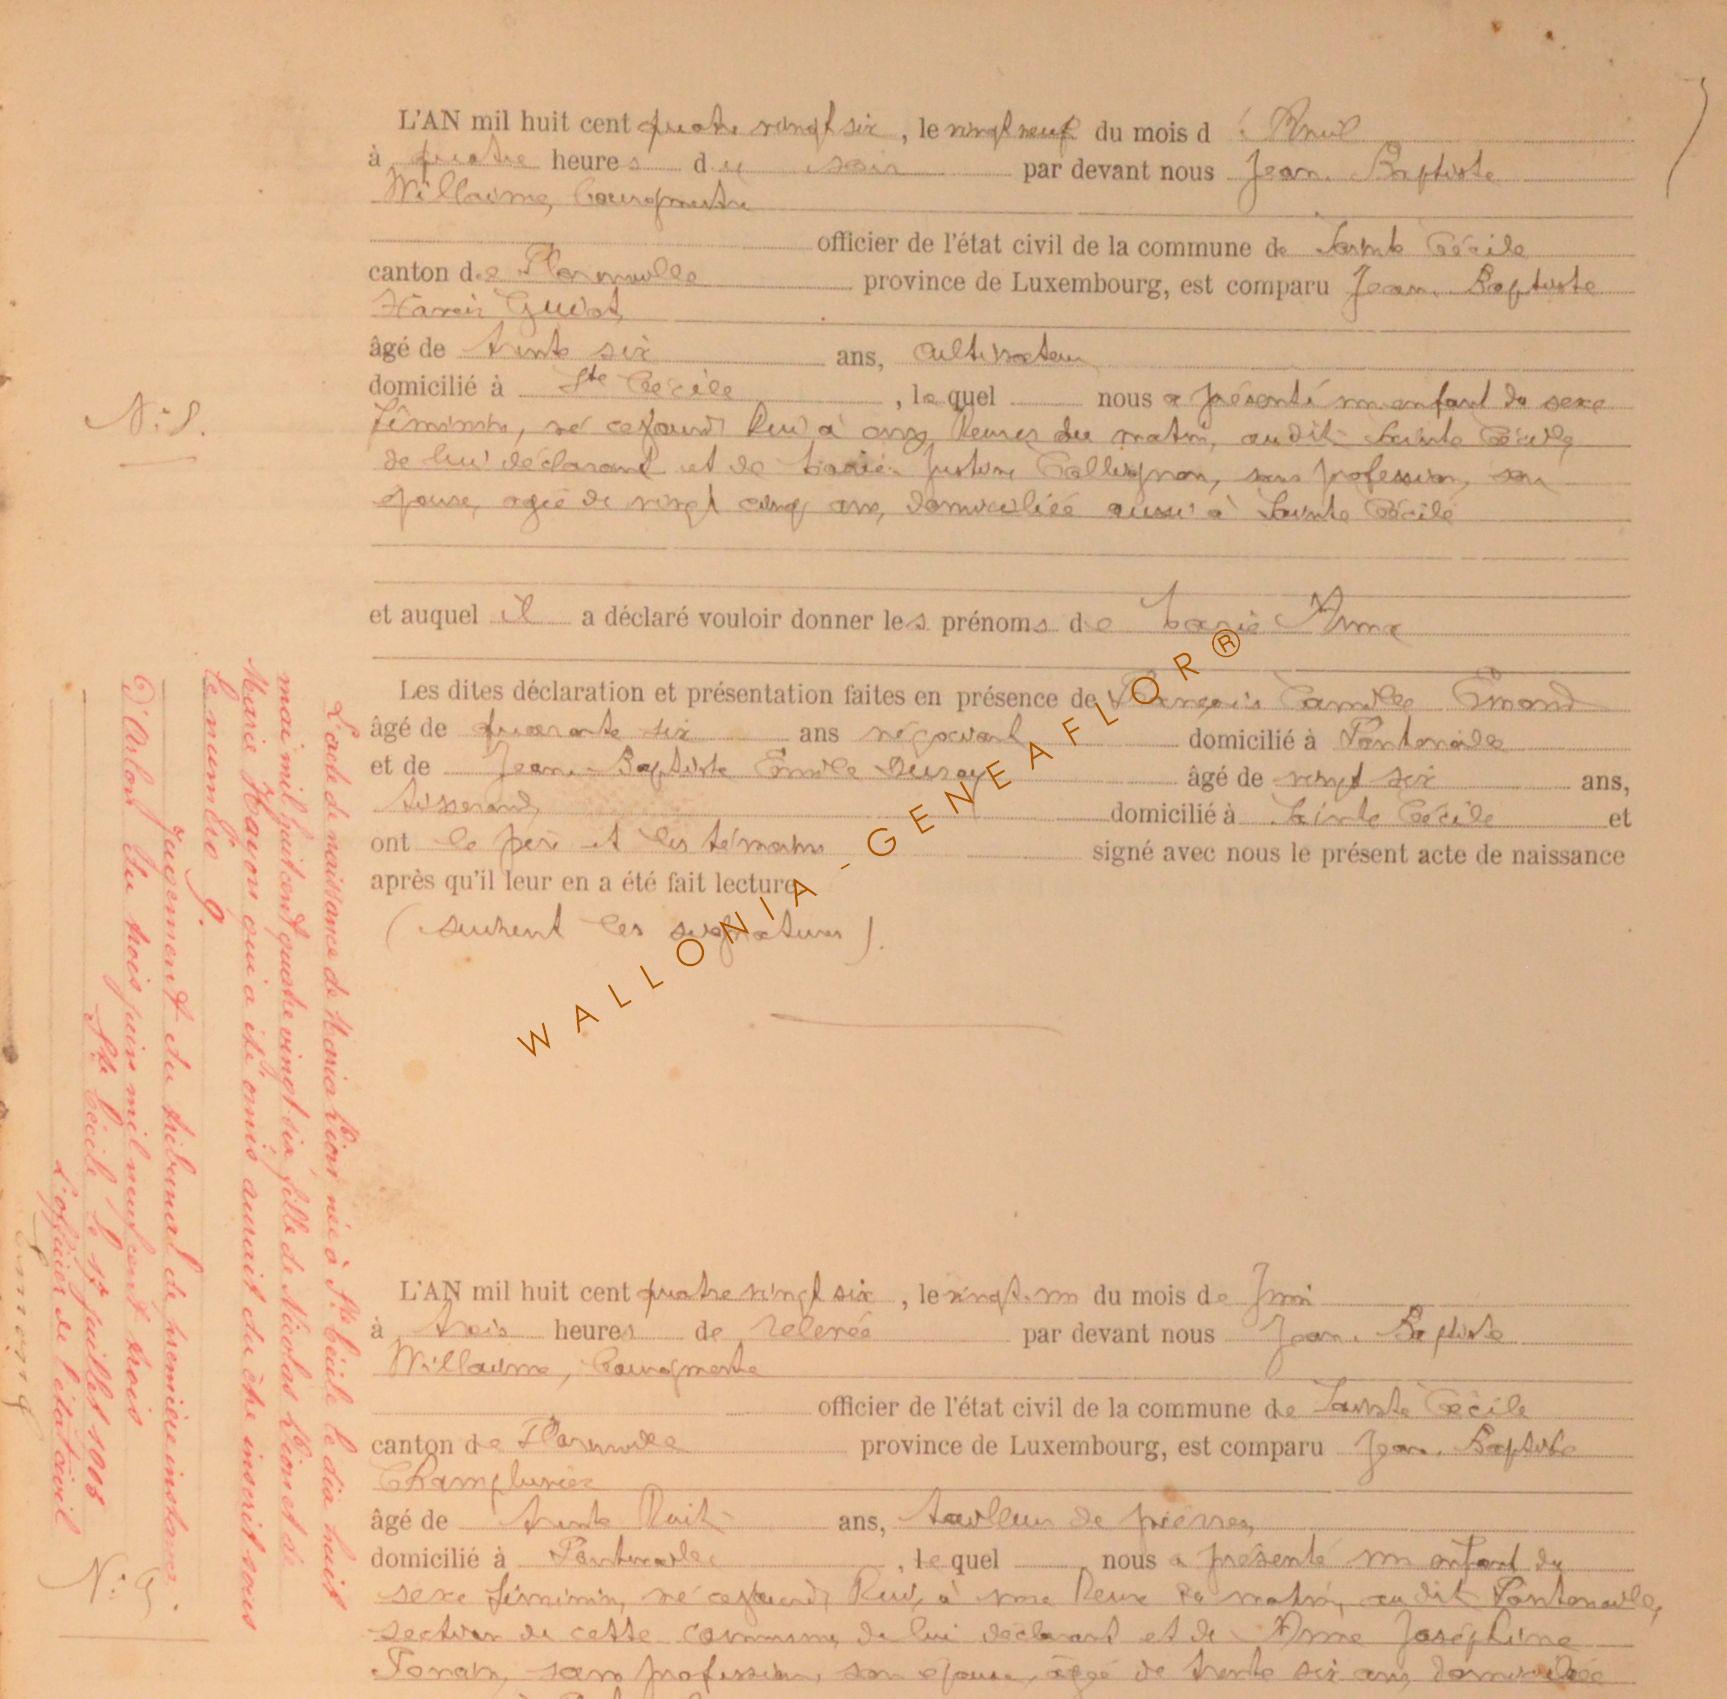 L'AN mil huit cent quatre vingt six, le vingt neuf du mois d' Avril
à quatre heures du soir par devant nous Jean Baptiste
Willaime, bourgmestre
officier de l'état civil de la commune de Sainte Cécile
canton de Florenville province de Luxembourg, est comparu Jean Baptiste
Guiot
âgé de trente six ans, cultivateur
domicilié à Ste Cécile, lequel nous a présenté un enfant du sexe
N: 8.
féminin, né cejourd'hui à onze heures du matin, audit Sainte Cécile,
de lui déclarant et de Marie Justine Collignon, sans profession, son
épouse, agée de vingt cinq ans, domiciliée aussi à Sainte Cécile
et auquel il a déclaré vouloir donner les prénoms de Marie Anna
Les dites déclaration et présentation faites en présence de François Camille Emond
âgé de quarante six ans négociant domicilié à Fontenoille
et de Jean Baptiste Emile âgé de vingt six ans,
tisserand, domicilié à Sainte Cécile et
ont le père et les témoins signé avec nous le présent acte de naissance
après qu'il leur en a été fait lecture
(suivent les signatures).
WALLONIA - GENEAFLOR®
L'acte de naissance de Maria Lion née à Ste Cécile le dix huit
mai mil huit cent quatre vingt six, fille de Nicolas Lion et de
Marie Havon qui a été omis aurait du être inscrit sous
le numéro 9.
Jugement du tribunal de première instance
d'Arlon du trois juin mil neuf cent trois
Ste Cécile le 17 juillet 1903
L'officier de l'état civil
Emond
L'AN mil huit cent quatre vingt six, le vingt un du mois de Juin
à trois heures de relevée par devant nous Jean Baptiste
Willaime, bourgmestre
officier de l'état civil de la commune de Sainte Cécile
canton de Florenville province de Luxembourg, est comparu Jean Baptiste
Champlunier
âgé de trente huit ans, tailleur de pierres,
domicilié à Fontenoille, lequel nous a présenté un enfant du
N: 9.
sexe féminin, né cejourd'hui, à une heure du matin, audit Fontenoille,
section de cette commune, de lui déclarant et de Anne Joséphine
sans profession, son épouse, agée de trente six ans, domiciliée